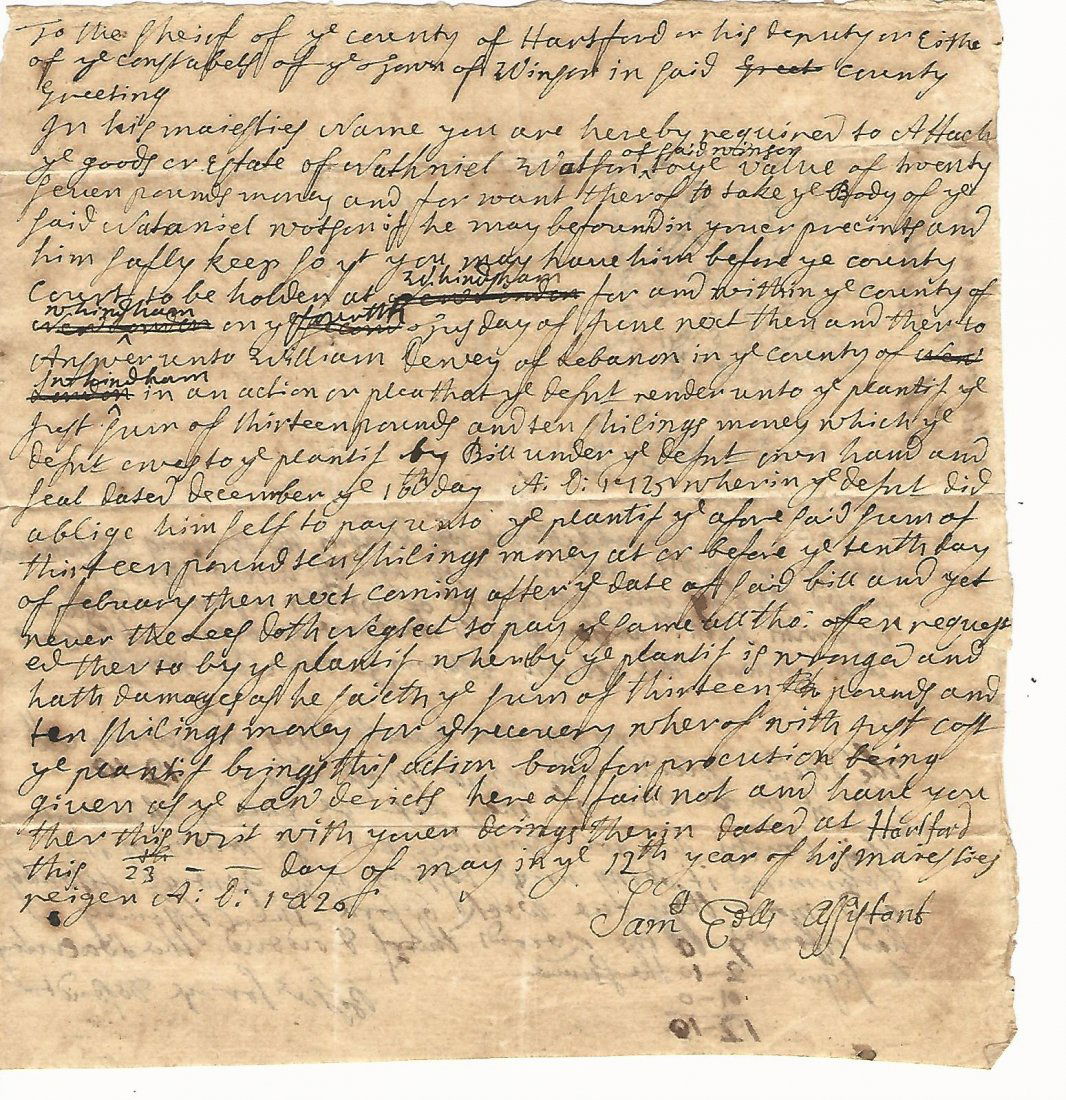 To the Sheirf of ye county of Hartford or his deputy or Eithe
of ye constabels off ye town of Winsor in said Greet county
Greeting
In his maiesties Name you are hereby required to Attach
of said winsor
ye goods or Estate of Nathniel Watson to ye value of twenty
seven pounds money and for want therof to take ye Body of ye
said Nataniel wotson if he may be found in youer precints and
him safly keep so yt you may have him before ye county
Whindham
Court to be holden at new london for and within ye county of
whindham fourtth
new london on ye second tusday of June next then and ther to
Answer unto William Dewey of Lebanon in ye county of new
whindham
london in an action or plea that ye defnt render unto ye plantif ye
Just sum of thirteen pounds and ten shilings money which ye
defnt owes to ye plantif by Bill under ye defnt own hand and
seal dated december ye 16th day A: D: 1725 wherin ye defnt did
oblige himself to pay unto ye plantif ye afore said sum of
thirteen pound ten shilings money at or before ye tenth day
of febuary then next coming after ye date off said bill and yet
never the Lees doth neglect to pay ye same all tho: offen request
ed ther to by ye plantif wherby ye plantif is wronged and
hath damages as he saieth ye sum of thirteen pounds and
ten shilings money for ye recovery wherof with Just cost
ye plantif brings this action bond for procution being
given as ye Law dericts here of faill not and have you
ther this writ with youer doings therin dated at Hartford
this 23th — — day of may in ye 12th year of his maiesties
reigen A: D: 1726
Samll Eells Assistant
9 10
12 10